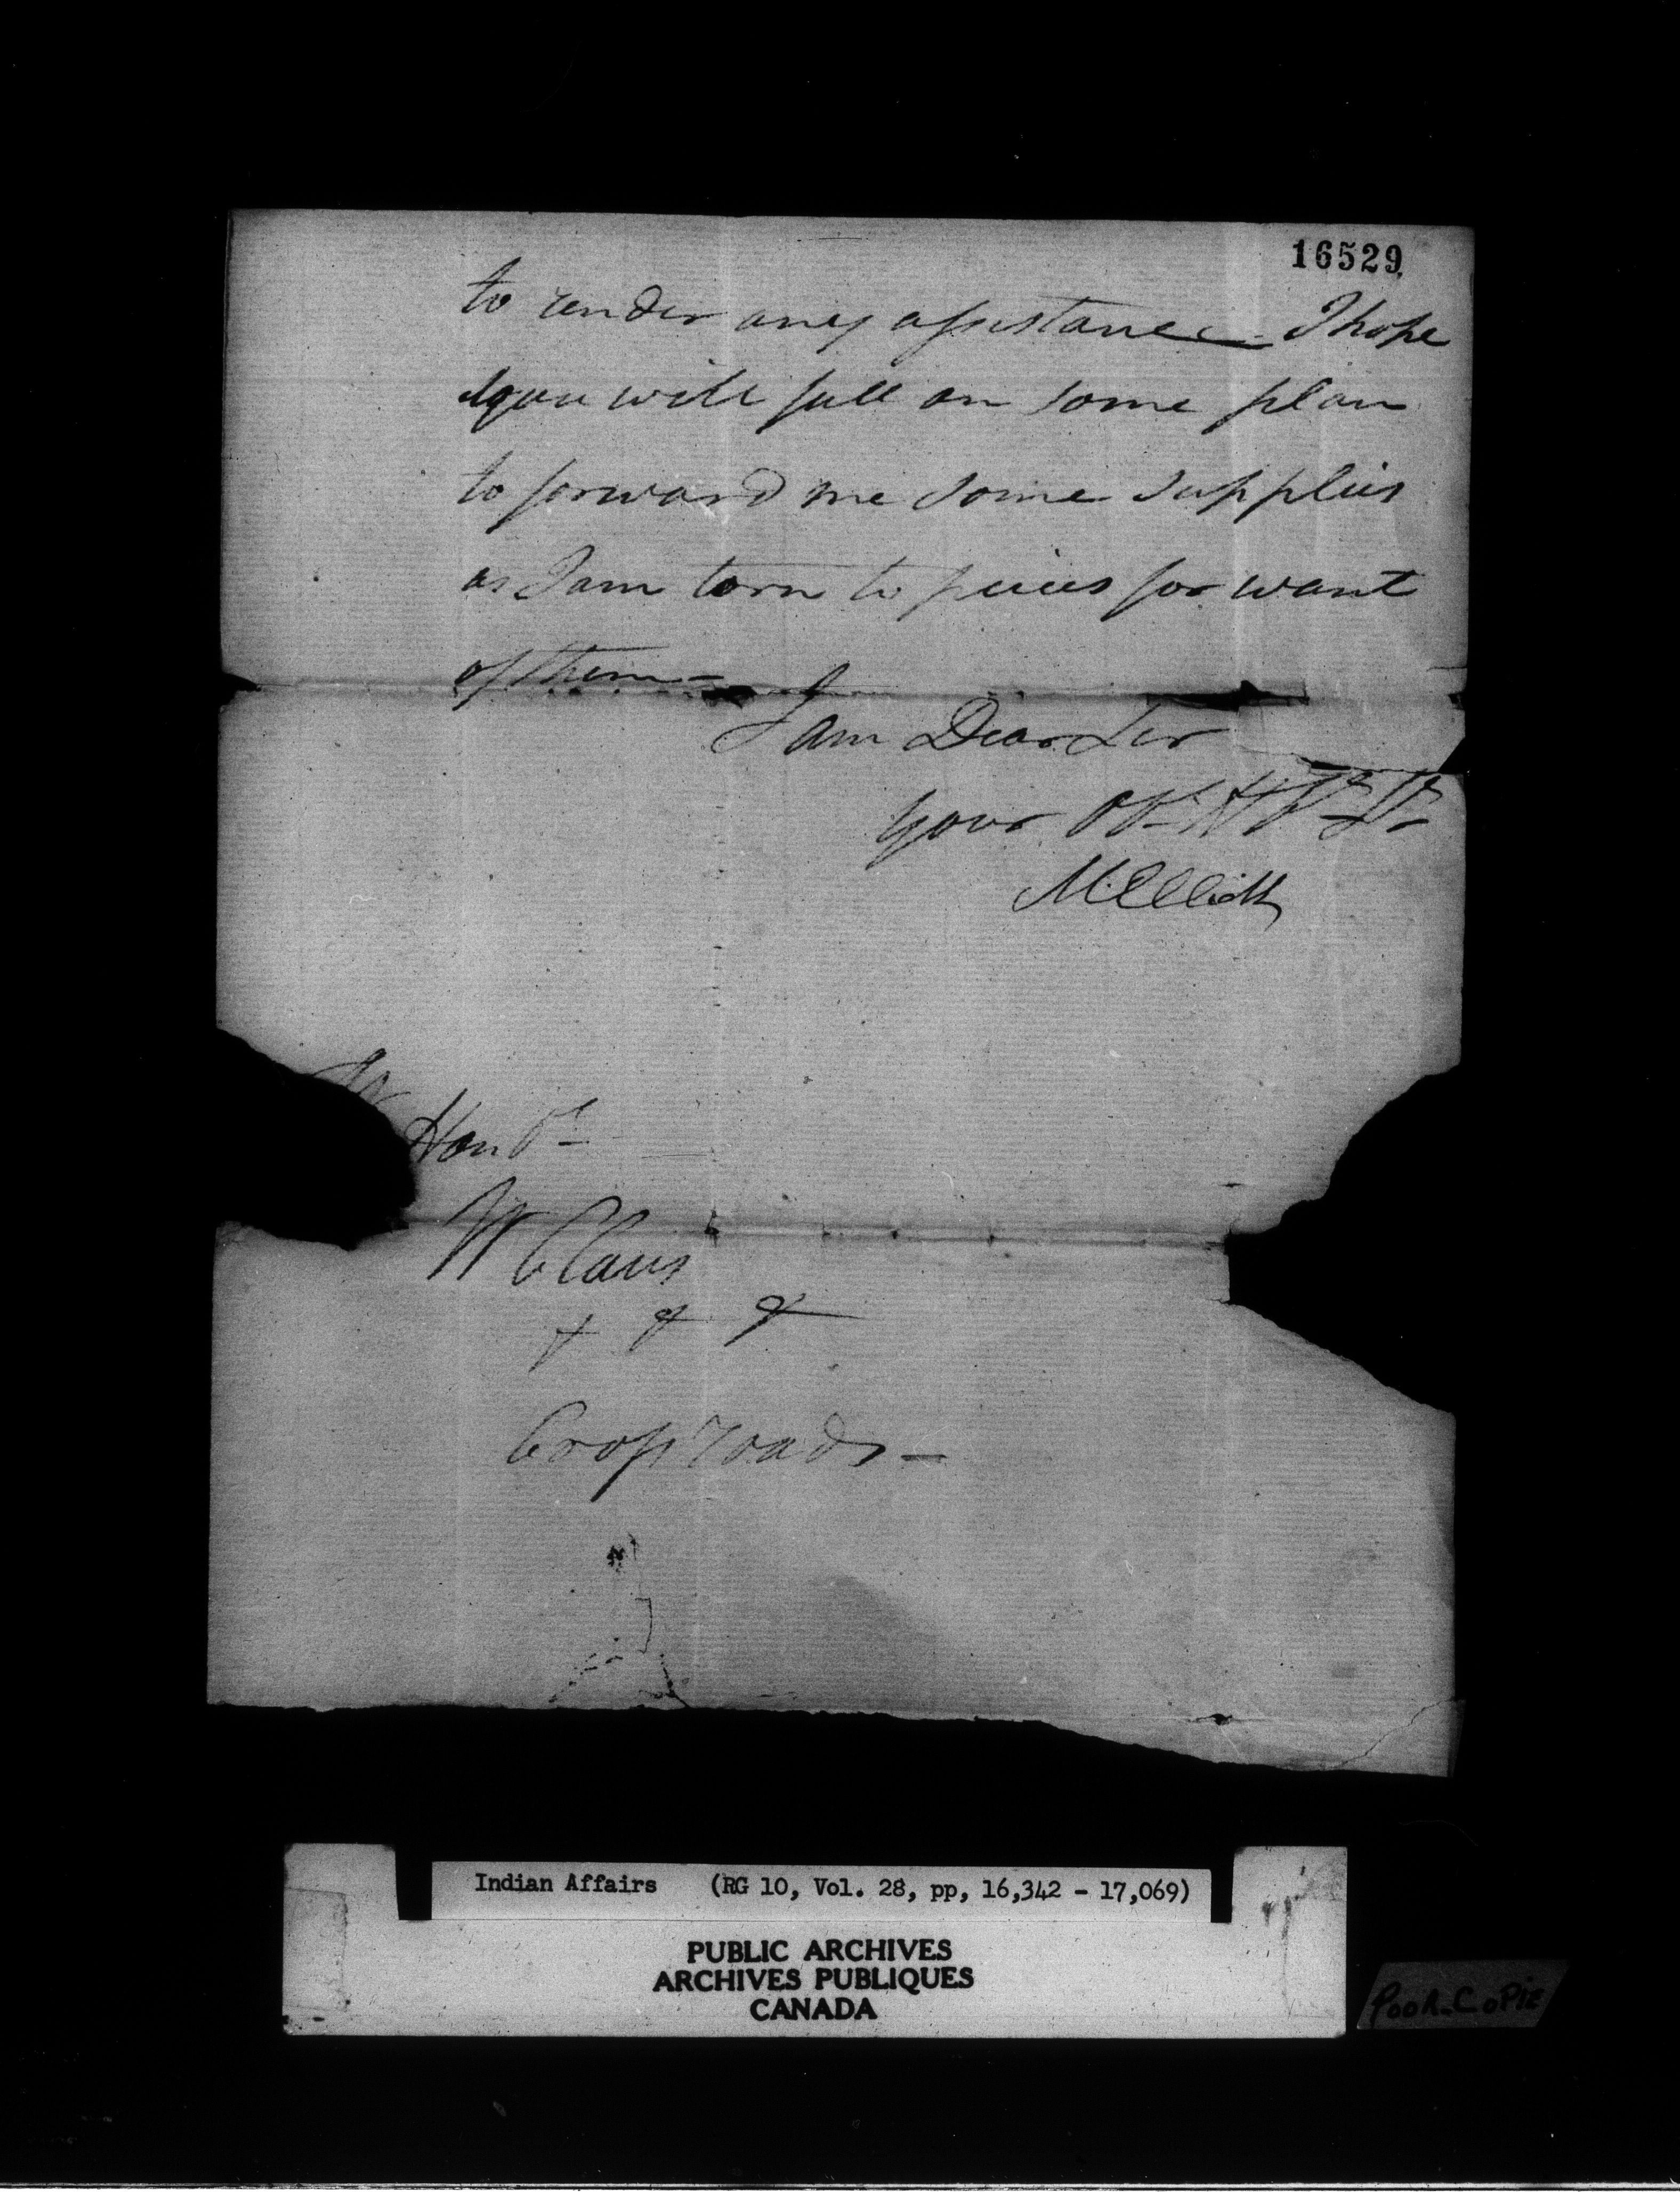 16529
to render any assistance - I hope
you will fall on some plan
to forward me some supplies
as I am torn to pieces for want
of them -
I am Dear Sir
your Ob- H
M Elliott
Honbl
W Claus
& & &
Cross roads -
Indian Affairs (RG 10, Vol. 28, pp, 16,342 - 17,069)
PUBLIC ARCHIVES
ARCHIVES PUBLIQUES
CANADA
POOR_COPIE